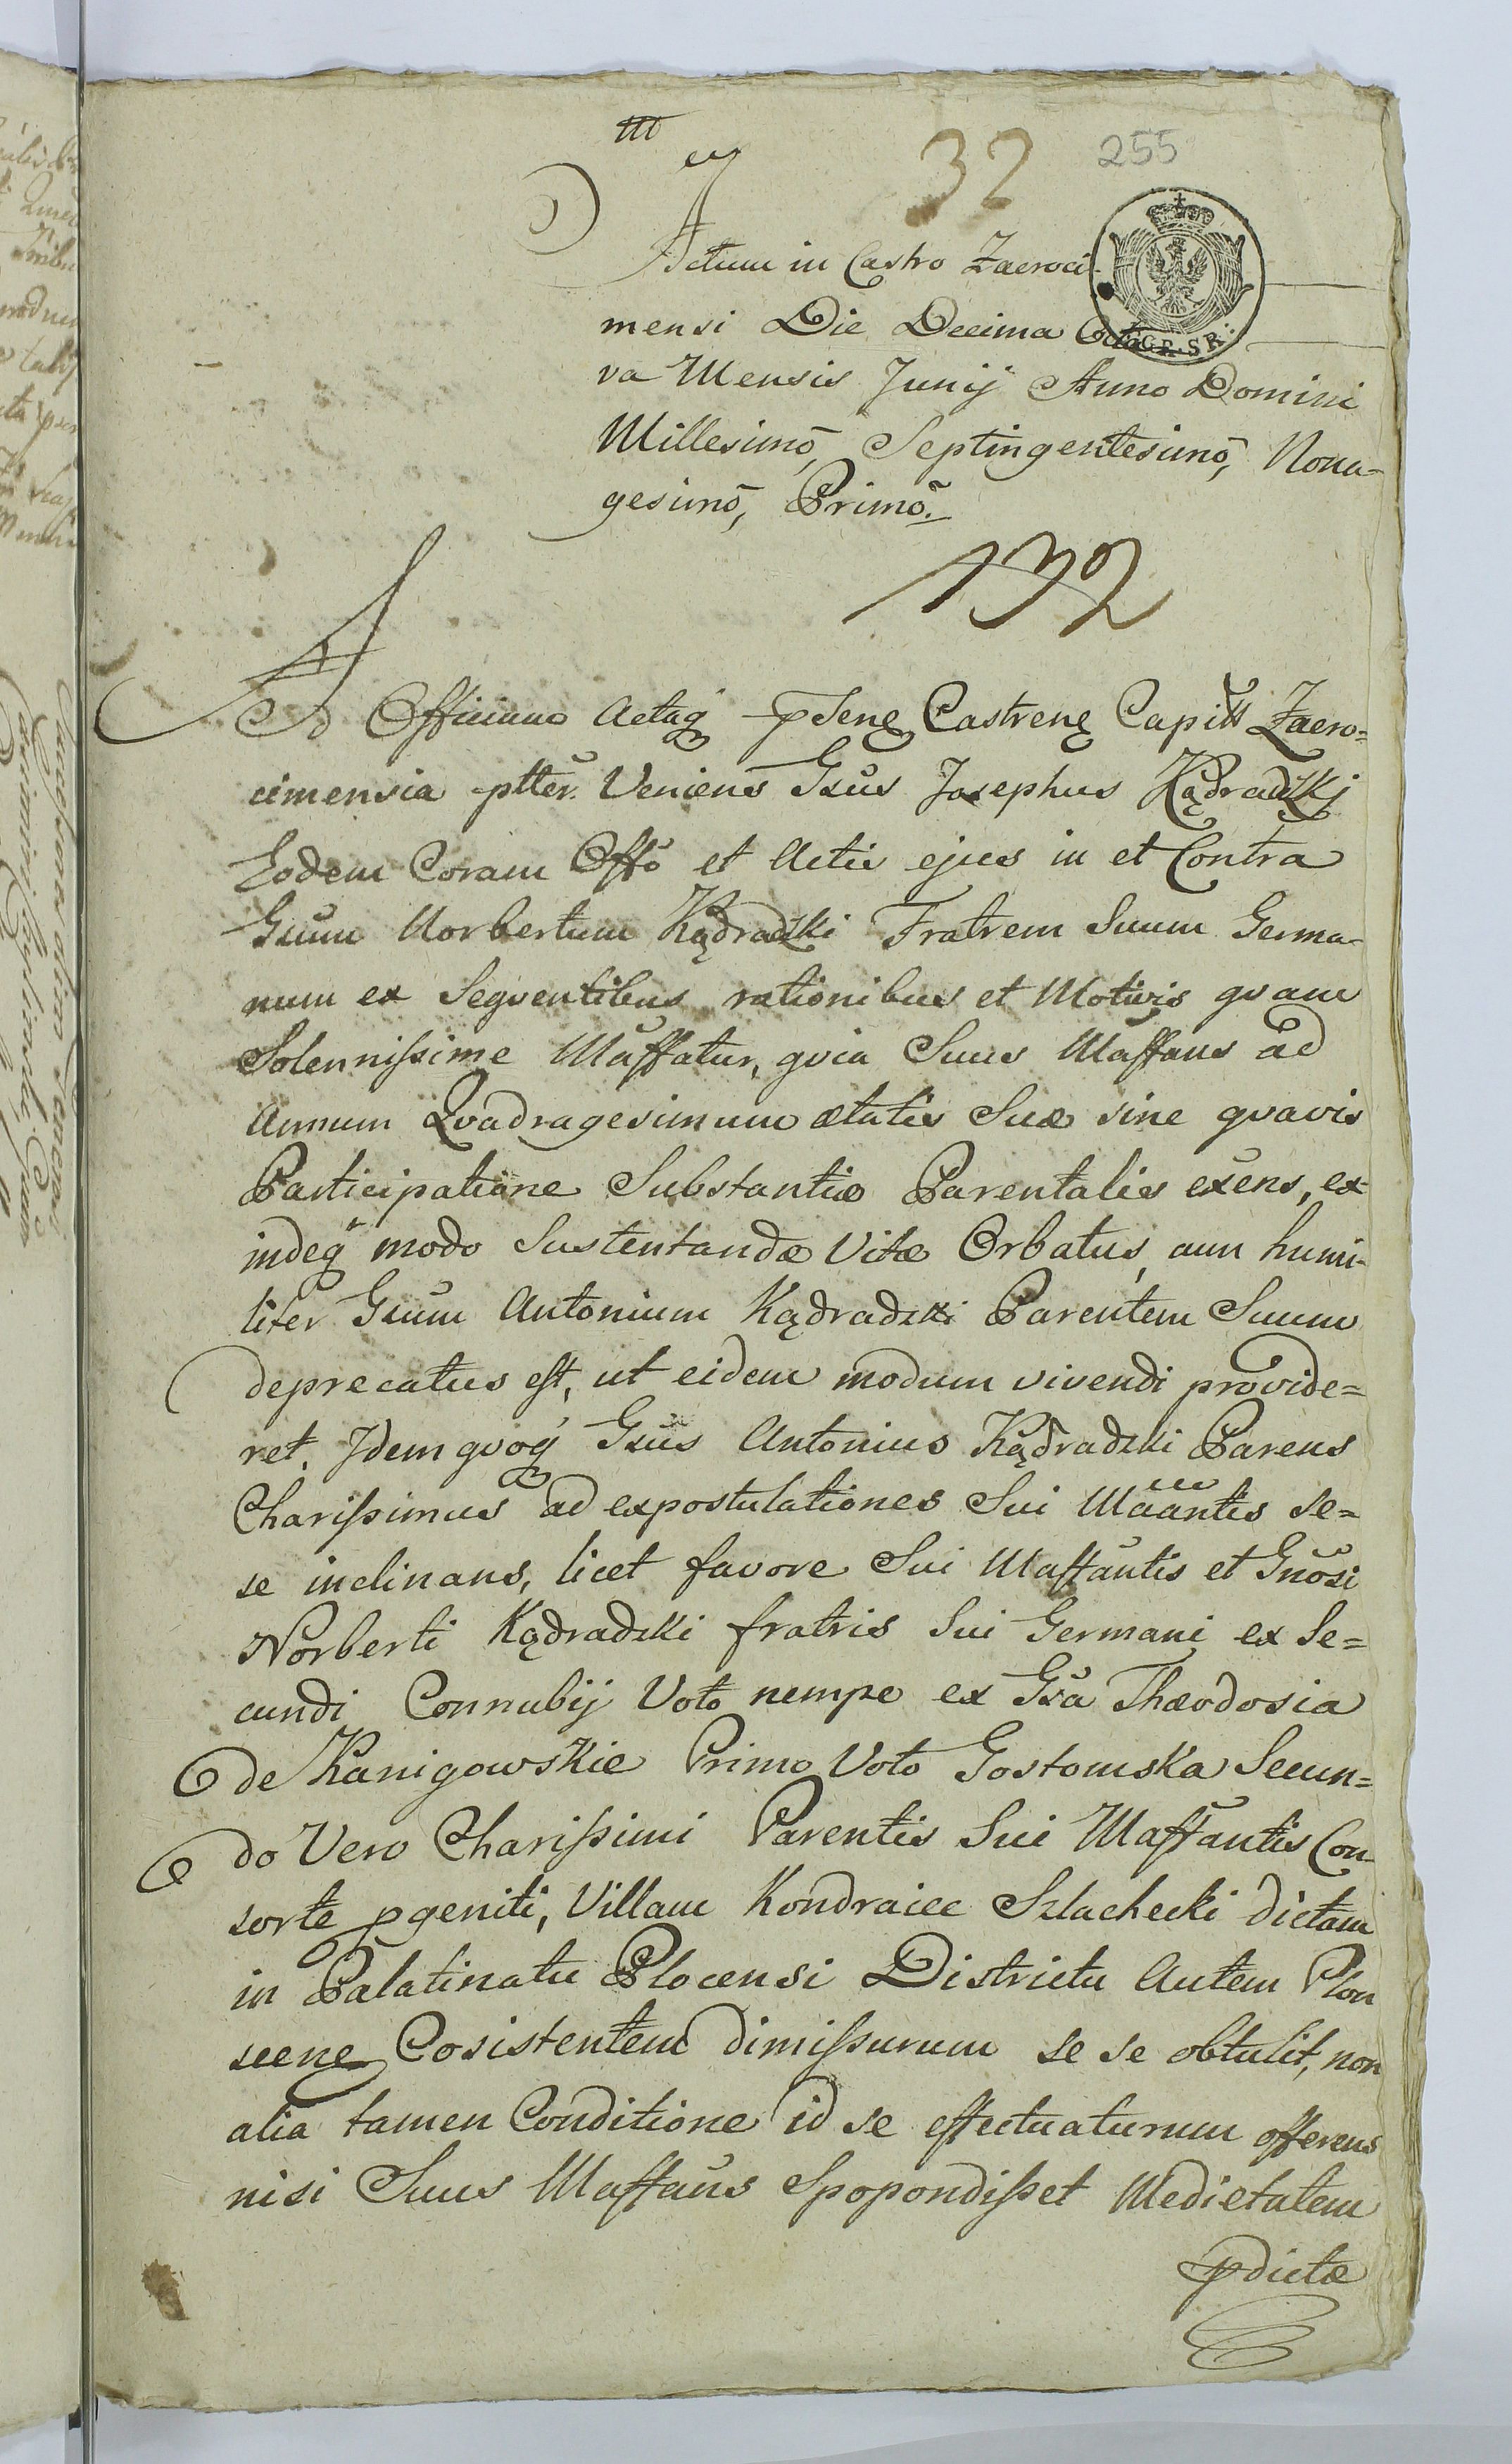 32
255
Actum in Castro Zacroci-
mensi Die Decima Octa
GR. SR.
va Mensis Junij Anno Domini
Millesimō, Septingentesimō, Nona-
gesimō, Primō.
132
Ad Officium Actaq̃ p̄senę Castrenę Capitt̃ Zacro=
cimensia ptter. Veniens Gsũs Josephus Kądradzkj
Eodem Coram Offõ et Actis ejus in et Contra
Gsũm Norbertum Kądradzki Fratrem Suum Germa-
num ex Seqventibus rationibus et Motivis qvam
Solennissime Mãffatur, qvia Suus Mãffans ad
Annum Qvadragesimum ætatis Suæ sine qvavis
Participatione Substantiæ Parentalis exẽns, ex-
indeq̃ modo Sustentandæ Vitæ Orbatus, cum humi-
liter Gsũm Antonium Kądradzki Parentem Suum
deprecatus est, ut eidem modum vivendi provide=
ret. Jdem qvoq̃ Gsũs Antonius Kądradzki Parens
Charissimus ad expostulationes Sui Mããntis se=
se inclinans, licet favore Sui Maffãntis et Gnõsi
Norberti Kądradzki fratris Sui Germani ex Se=
cundi Connubij Voto nempe ex Gsã Thæodosia
de Kanigowskie Primo Voto Gostomska Secun=
do Vero Charissimi Parentis Sui Maffãntis Con-
sorte pgeniti, Villam Kondraiec Szlachecki dictam
in Palatinatu Plocensi Districtu Autem Plon
scenę Cosistentem dimissurum se se obtulit, non
alia tamen Conditione id se effectuaturum offerens
nisi Suus Maffãns Spopondisset Medietatem
p̄dictæ